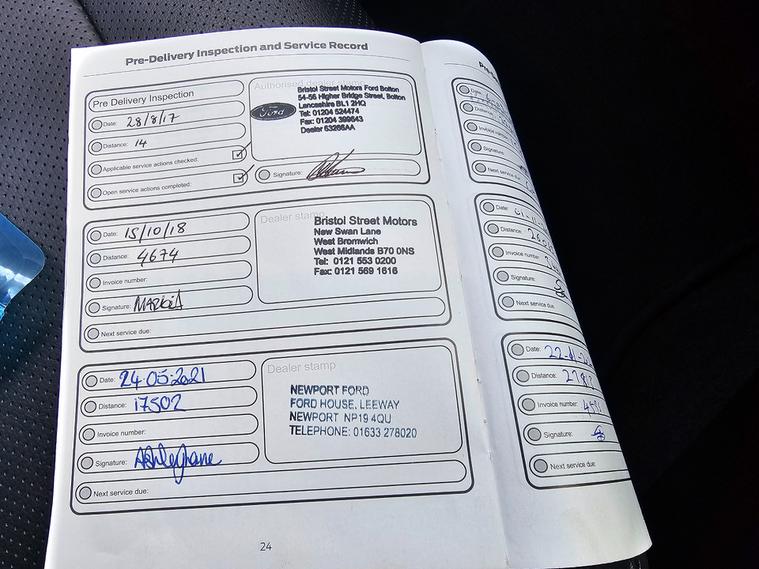 Pre-Delivery Inspection and Service Record
Pre Delivery Inspection
Date: 28/8/17
Distance: 14
Applicable service actions checked:
Open service actions completed:
Authorised dealer stamp
Ford
Bristol Street Motors Ford Bolton
54-56 Higher Bridge Street, Bolton
Lancashire BL1 2HQ
Tel: 01204 524474
Fax: 01204 399643
Dealer 53266AA
Signature:
Date: 15/10/18
Distance: 4674
Invoice number:
Signature:
Next service due:
Dealer stamp
Bristol Street Motors
New Swan Lane
West Bromwich
West Midlands B70 0NS
Tel: 0121 553 0200
Fax: 0121 569 1616
Date: 24-05-2021
Distance: 17502
Invoice number:
Signature:
Next service due:
Dealer stamp
NEWPORT FORD
FORD HOUSE, LEEWAY
NEWPORT NP19 4QU
TELEPHONE: 01633 278020
24
Date:
Distance:
Invoice number
Signature:
Next service
Date:
Distance:
Invoice number
Signature:
Next service due:
Date: 22-
Distance:
Invoice number:
Signature:
Next service due: